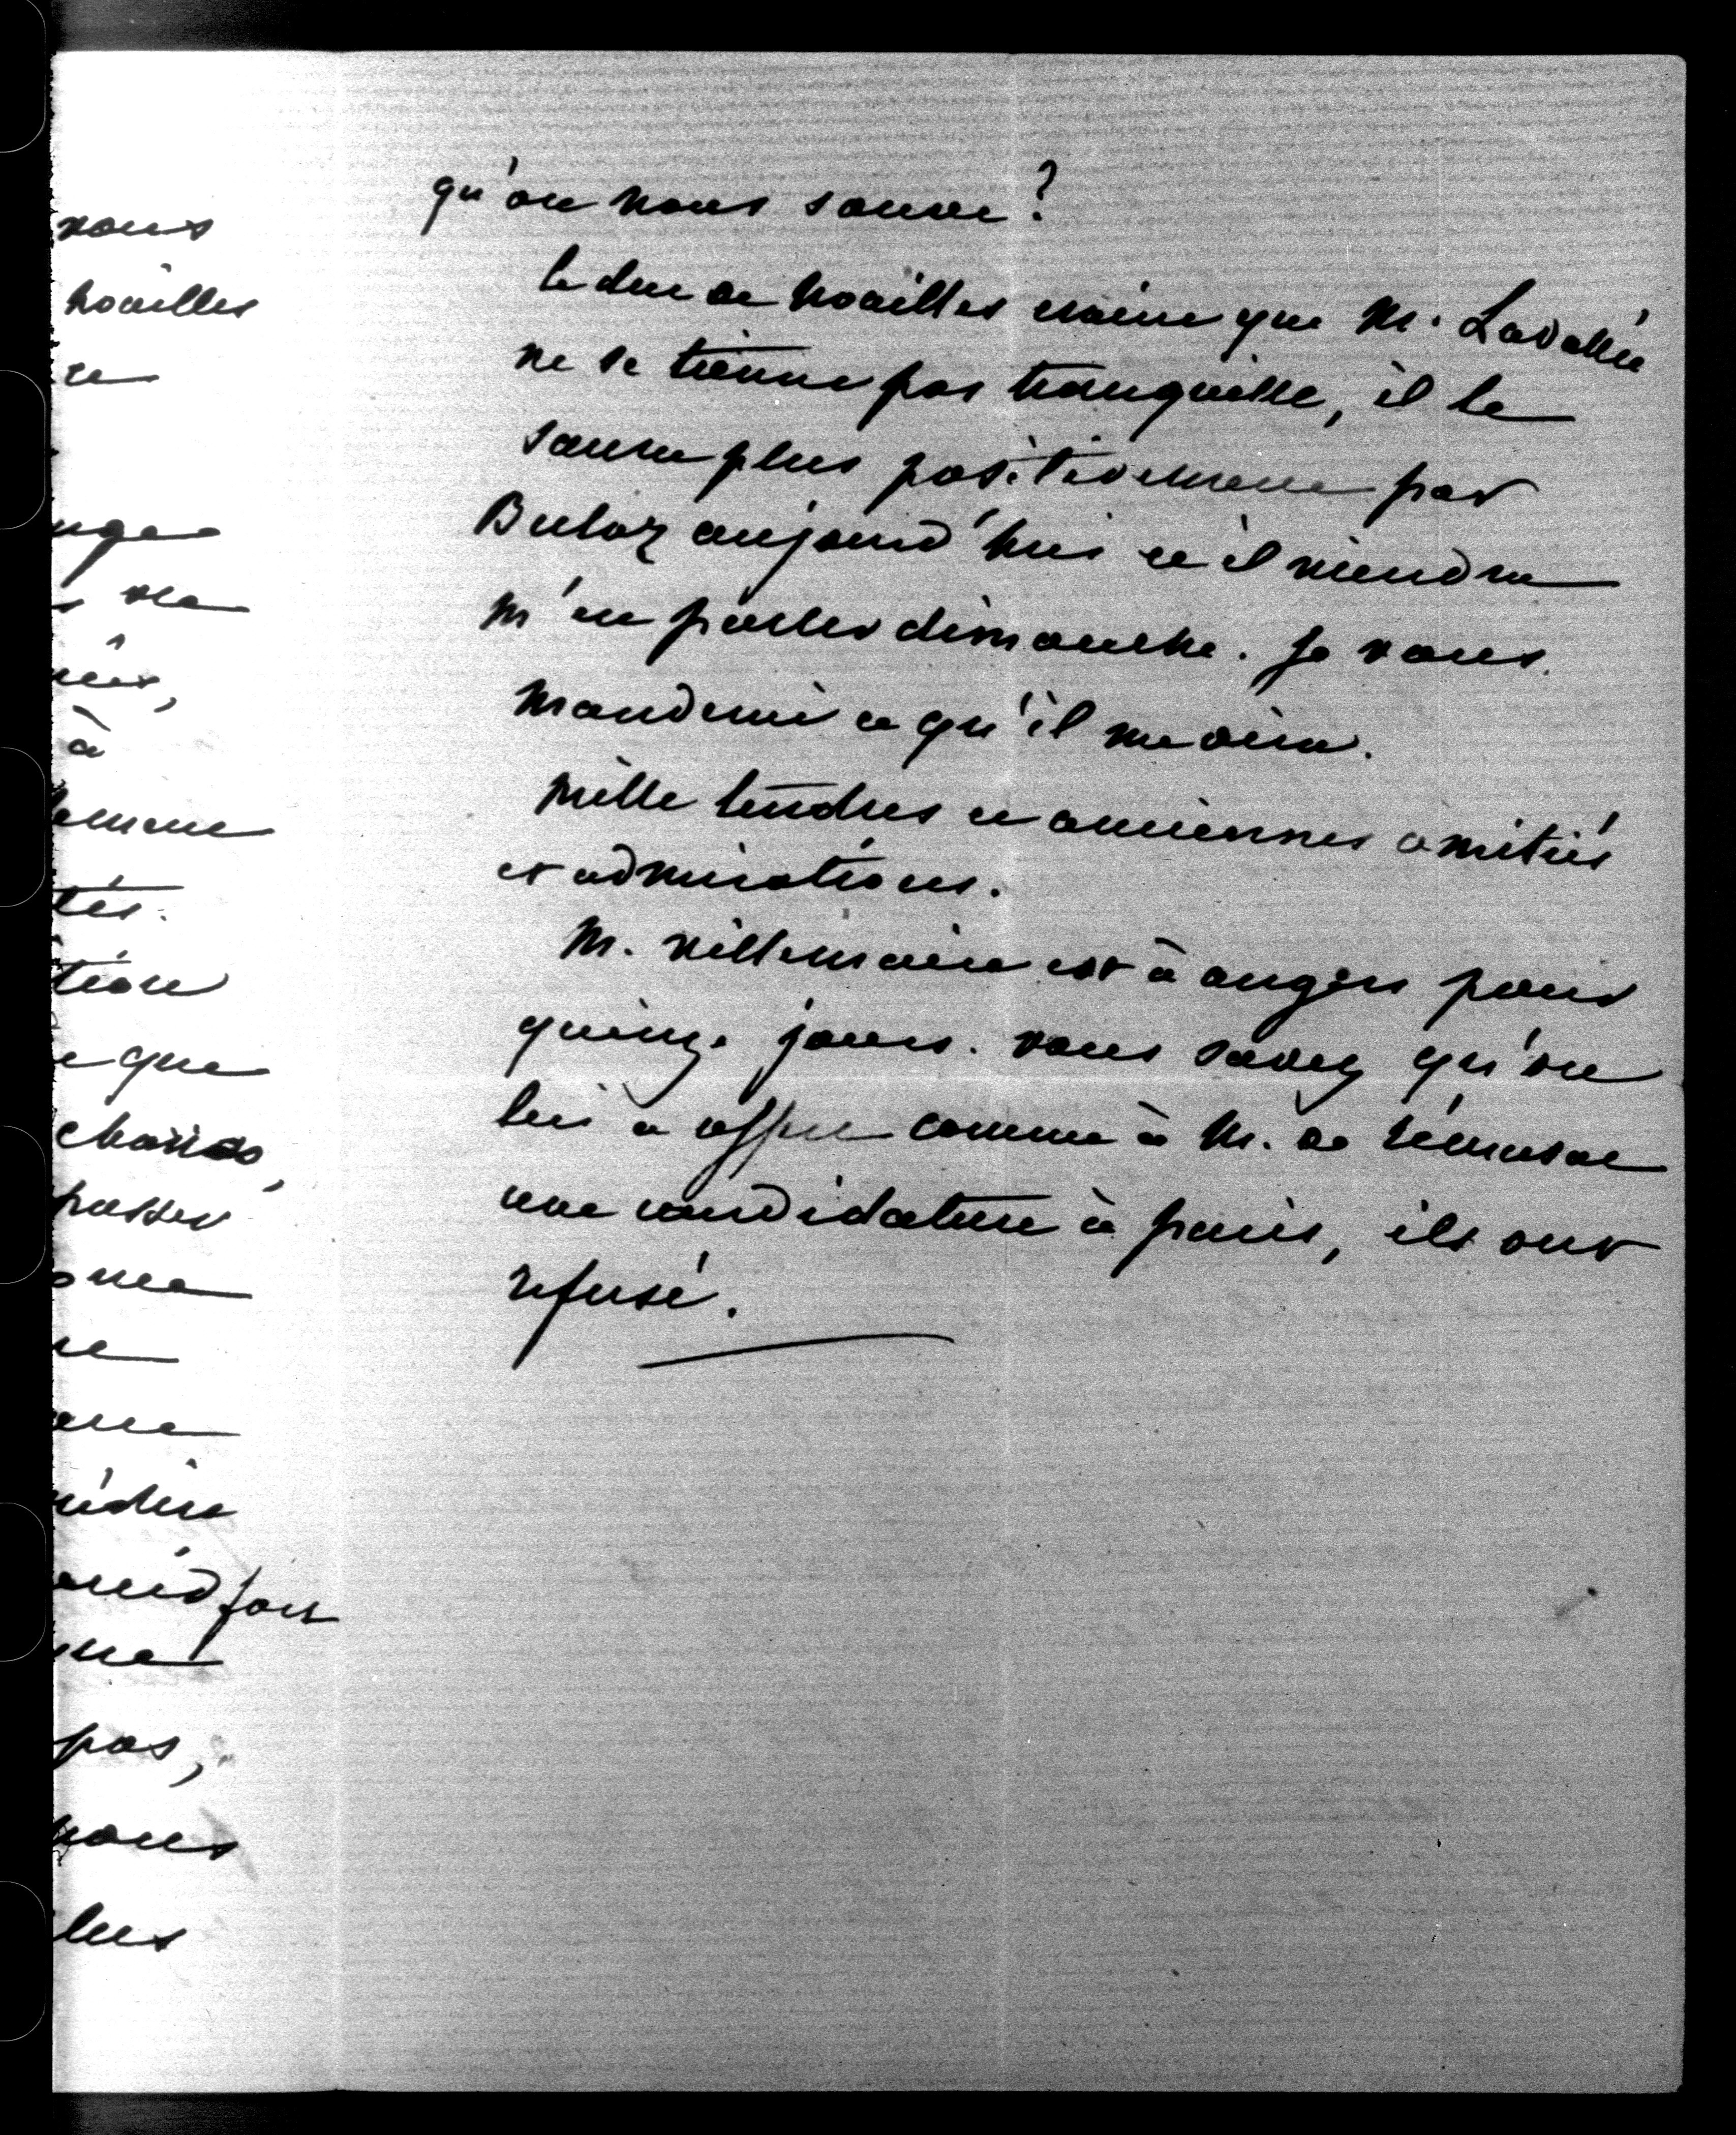 qu'on nous sauve?
le duc de Noailles craint que M. Lavallée
ne se tienne pas tranquille, il le
saura plus positivement par
Buloz aujourd'hui et il viendra
m'en parler dimanche. Je vous
manderai ce qu'il me dira.
mille tendres et anciennes amitiés
et admirations.
M. Villemain est à angers pour
quinze jours. vous savez qu'on
lui a offert comme à M. de Rémusat
une candidature à paris, ils ont
refusé.
vous
noailles
re
à
tés.
que
choisis,
passer
fort
pas,
nous